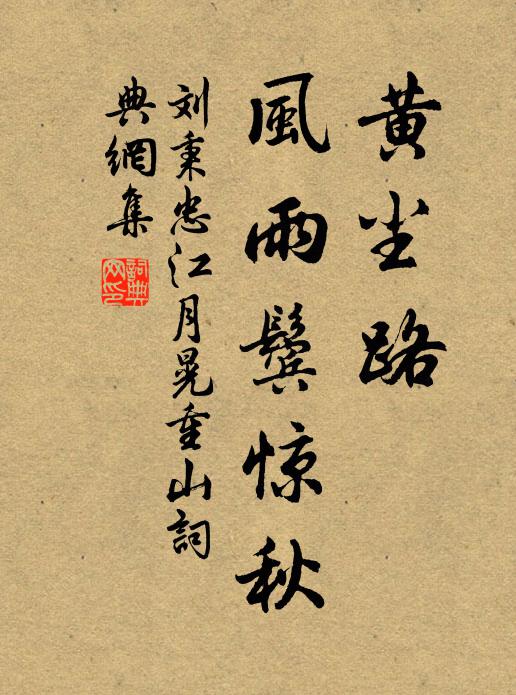 黄尘路
風雨鬓惊秋
刘秉忠江月晃重山詞
典網集
詞典
网印